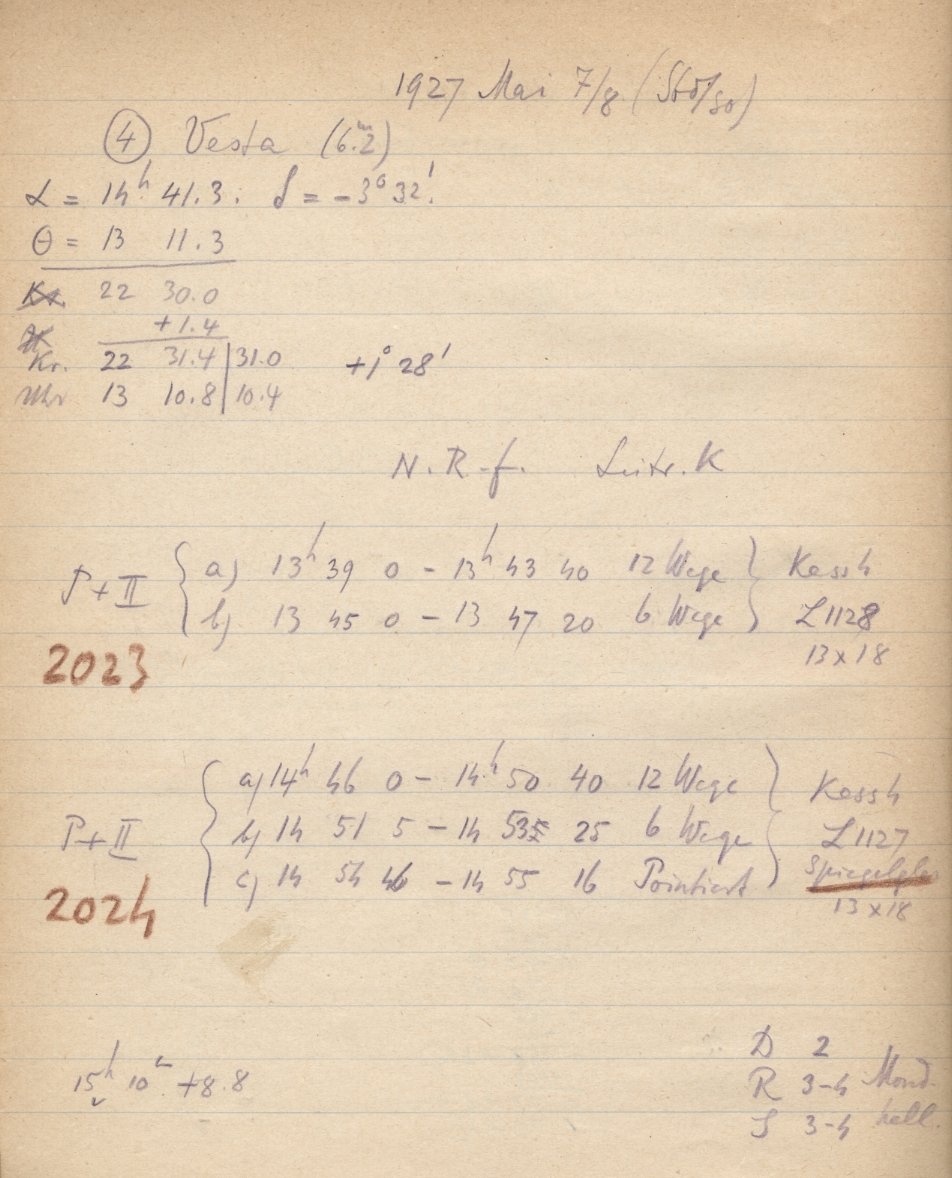 1927 Mai 7/8 (Stö/so)
④ Vesta (6.ᵐ2)
α = 14ʰ 41.3. δ = -3° 32'.
Θ = 13 11.3
Kr. 22 30.0
+1.4
Kr. 22 31.4 | 31.0 +1° 28'
Uhr 13 10.8 | 10.4
N. R. f. Leitr. K
P + II { a) 13ʰ 39 0 - 13ʰ 43 40 12 Wege } Kassh
b) 13 45 0 - 13 47 20 6 Wege L 1128
2023 13 x 18
a) 14ʰ 46 0 - 14ʰ 50 40 12 Wege Kassh
P + II { b) 14 51 5 - 14 53 25 6 Wege } L 1127
c) 14 54 46 - 14 55 16 Pointiert Spiegelglas
2024 13 x 18
D 2
15ʰ 10ᵐ +8.8 R 3-4 Mond
S 3-4 hell.